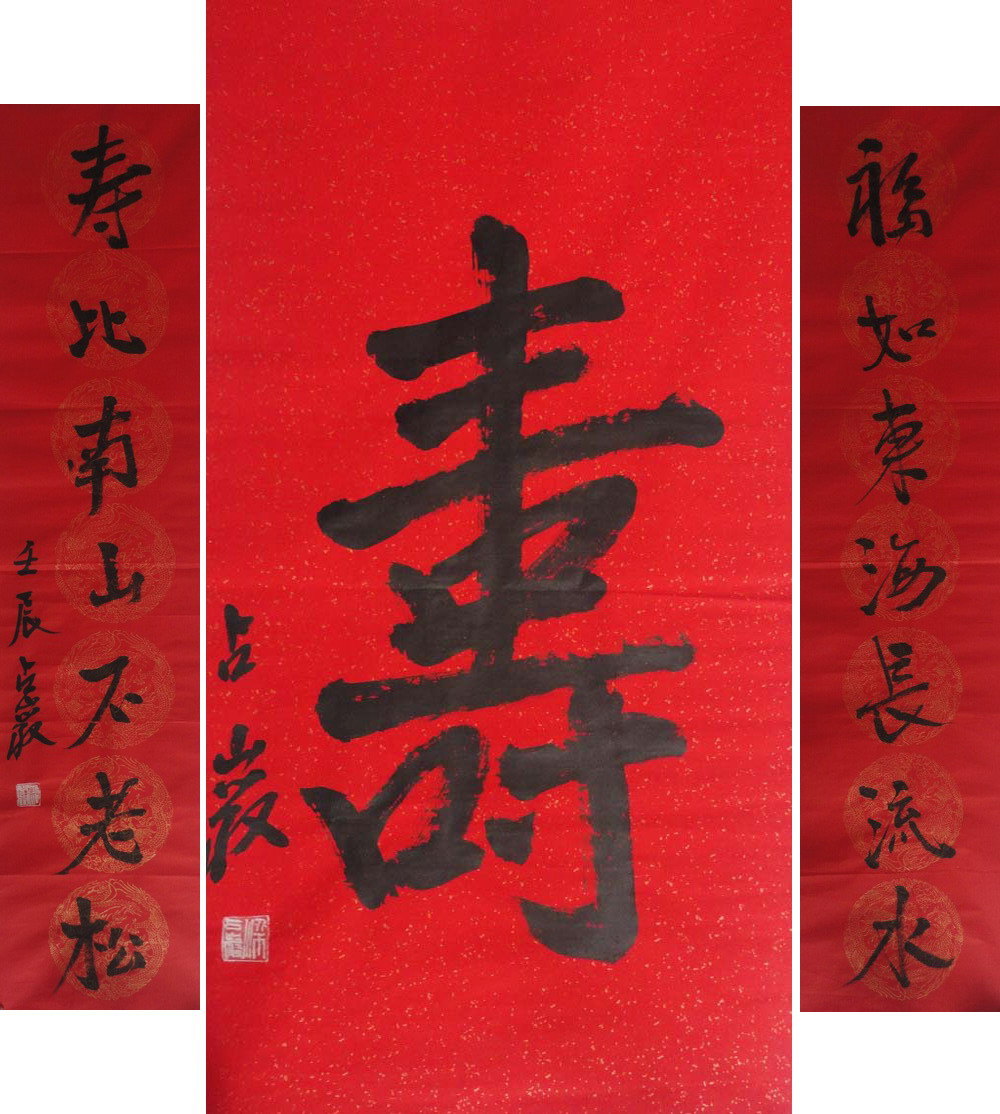 福如東海長流水
壽
占巖
寿比南山不老松
壬辰占巖